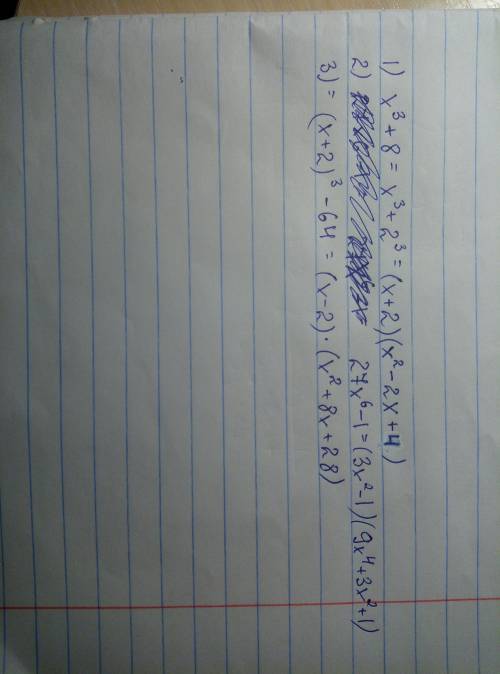 1) x³ + 8 = x³ + 2³ = (x+2)(x² - 2x + 4)
2) 27x⁶ - 1 = (3x² - 1)(9x⁴ + 3x² + 1)
3) = (x+2)³ - 64 = (x-2) · (x² + 8x + 28)